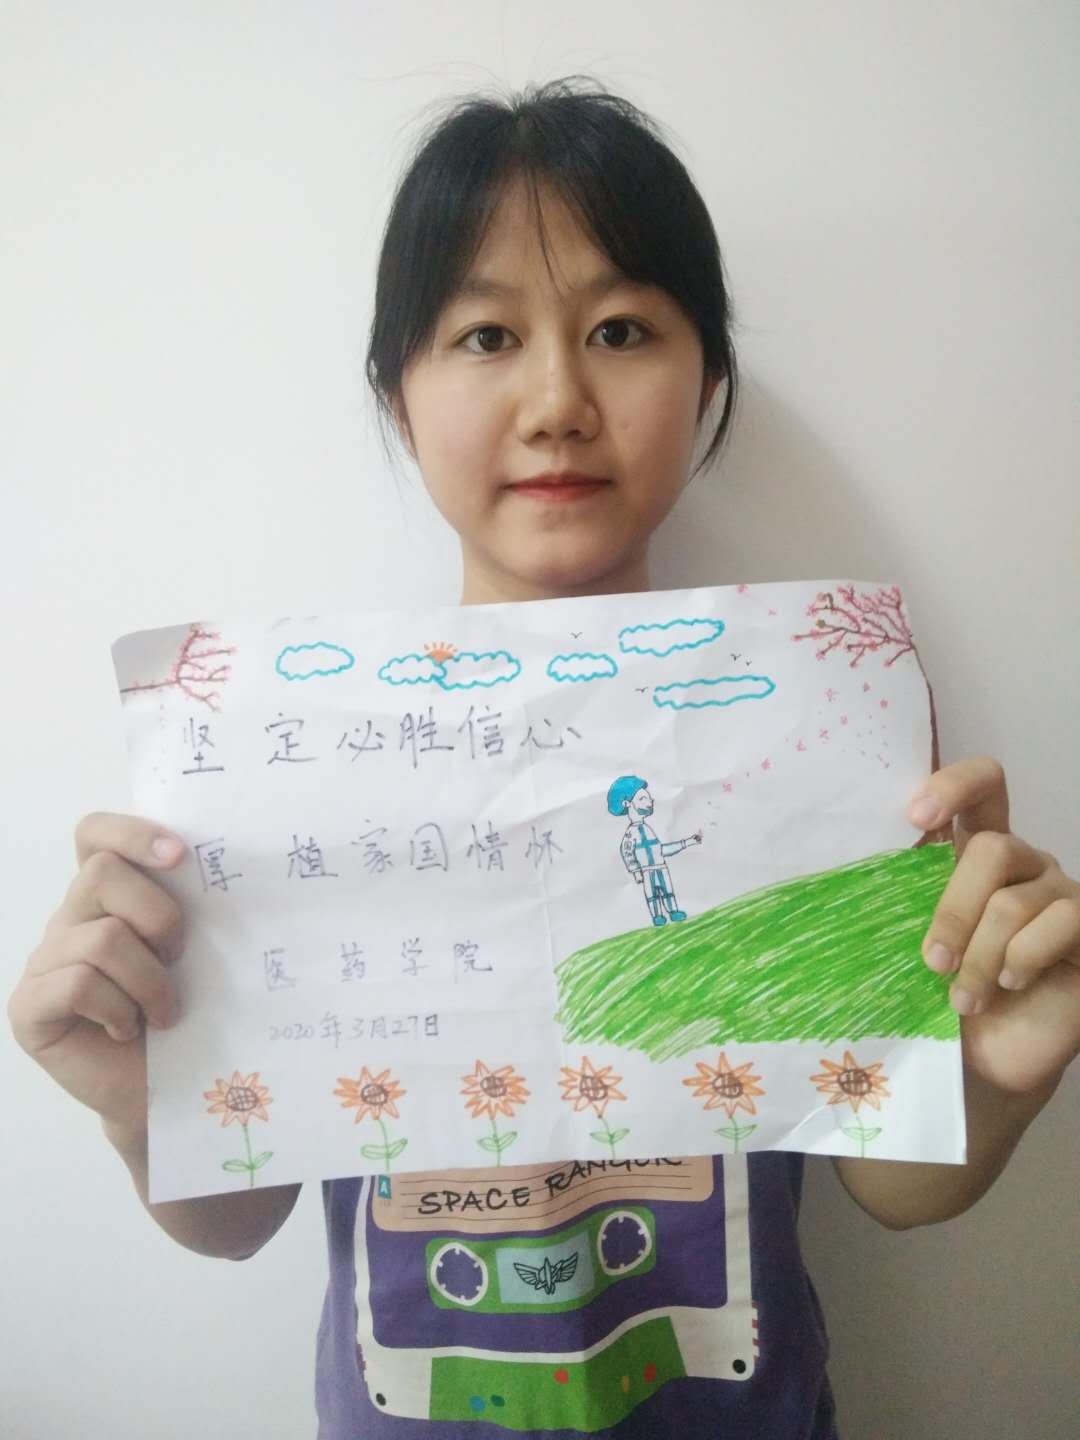 坚定必胜信心
厚植家国情怀
医药学院
2020年3月27日
A
SPACE RANGER